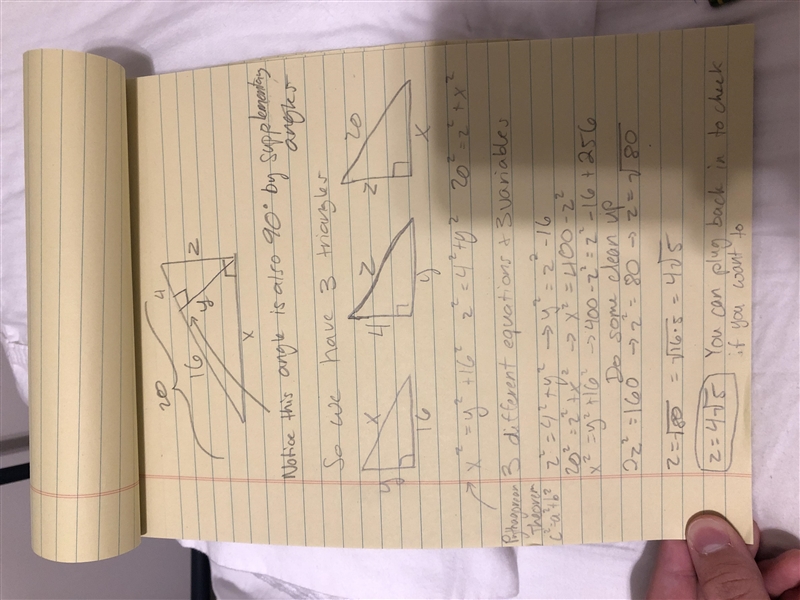 20
4
16
y
z
x
Notice this angle is also 90° by supplementary
angles
So we have 3 triangles
y x 16
4 z y
z 20 x
x² = y² + 16² z² = 4² + y² 20² = z² + x²
Pythagorean
Theorem
c² = a² + b²
3 different equations + 3 variables
z² = 4² + y² → y² = z² - 16
20² = z² + x² → x² = 400 - z²
x² = y² + 16² → 400 - z² = z² - 16 + 256
Do some clean up
2z² = 160 → z² = 80 → z = √80
z = √80 = √16·5 = 4√5
z = 4√5 You can plug back in to check
if you want to